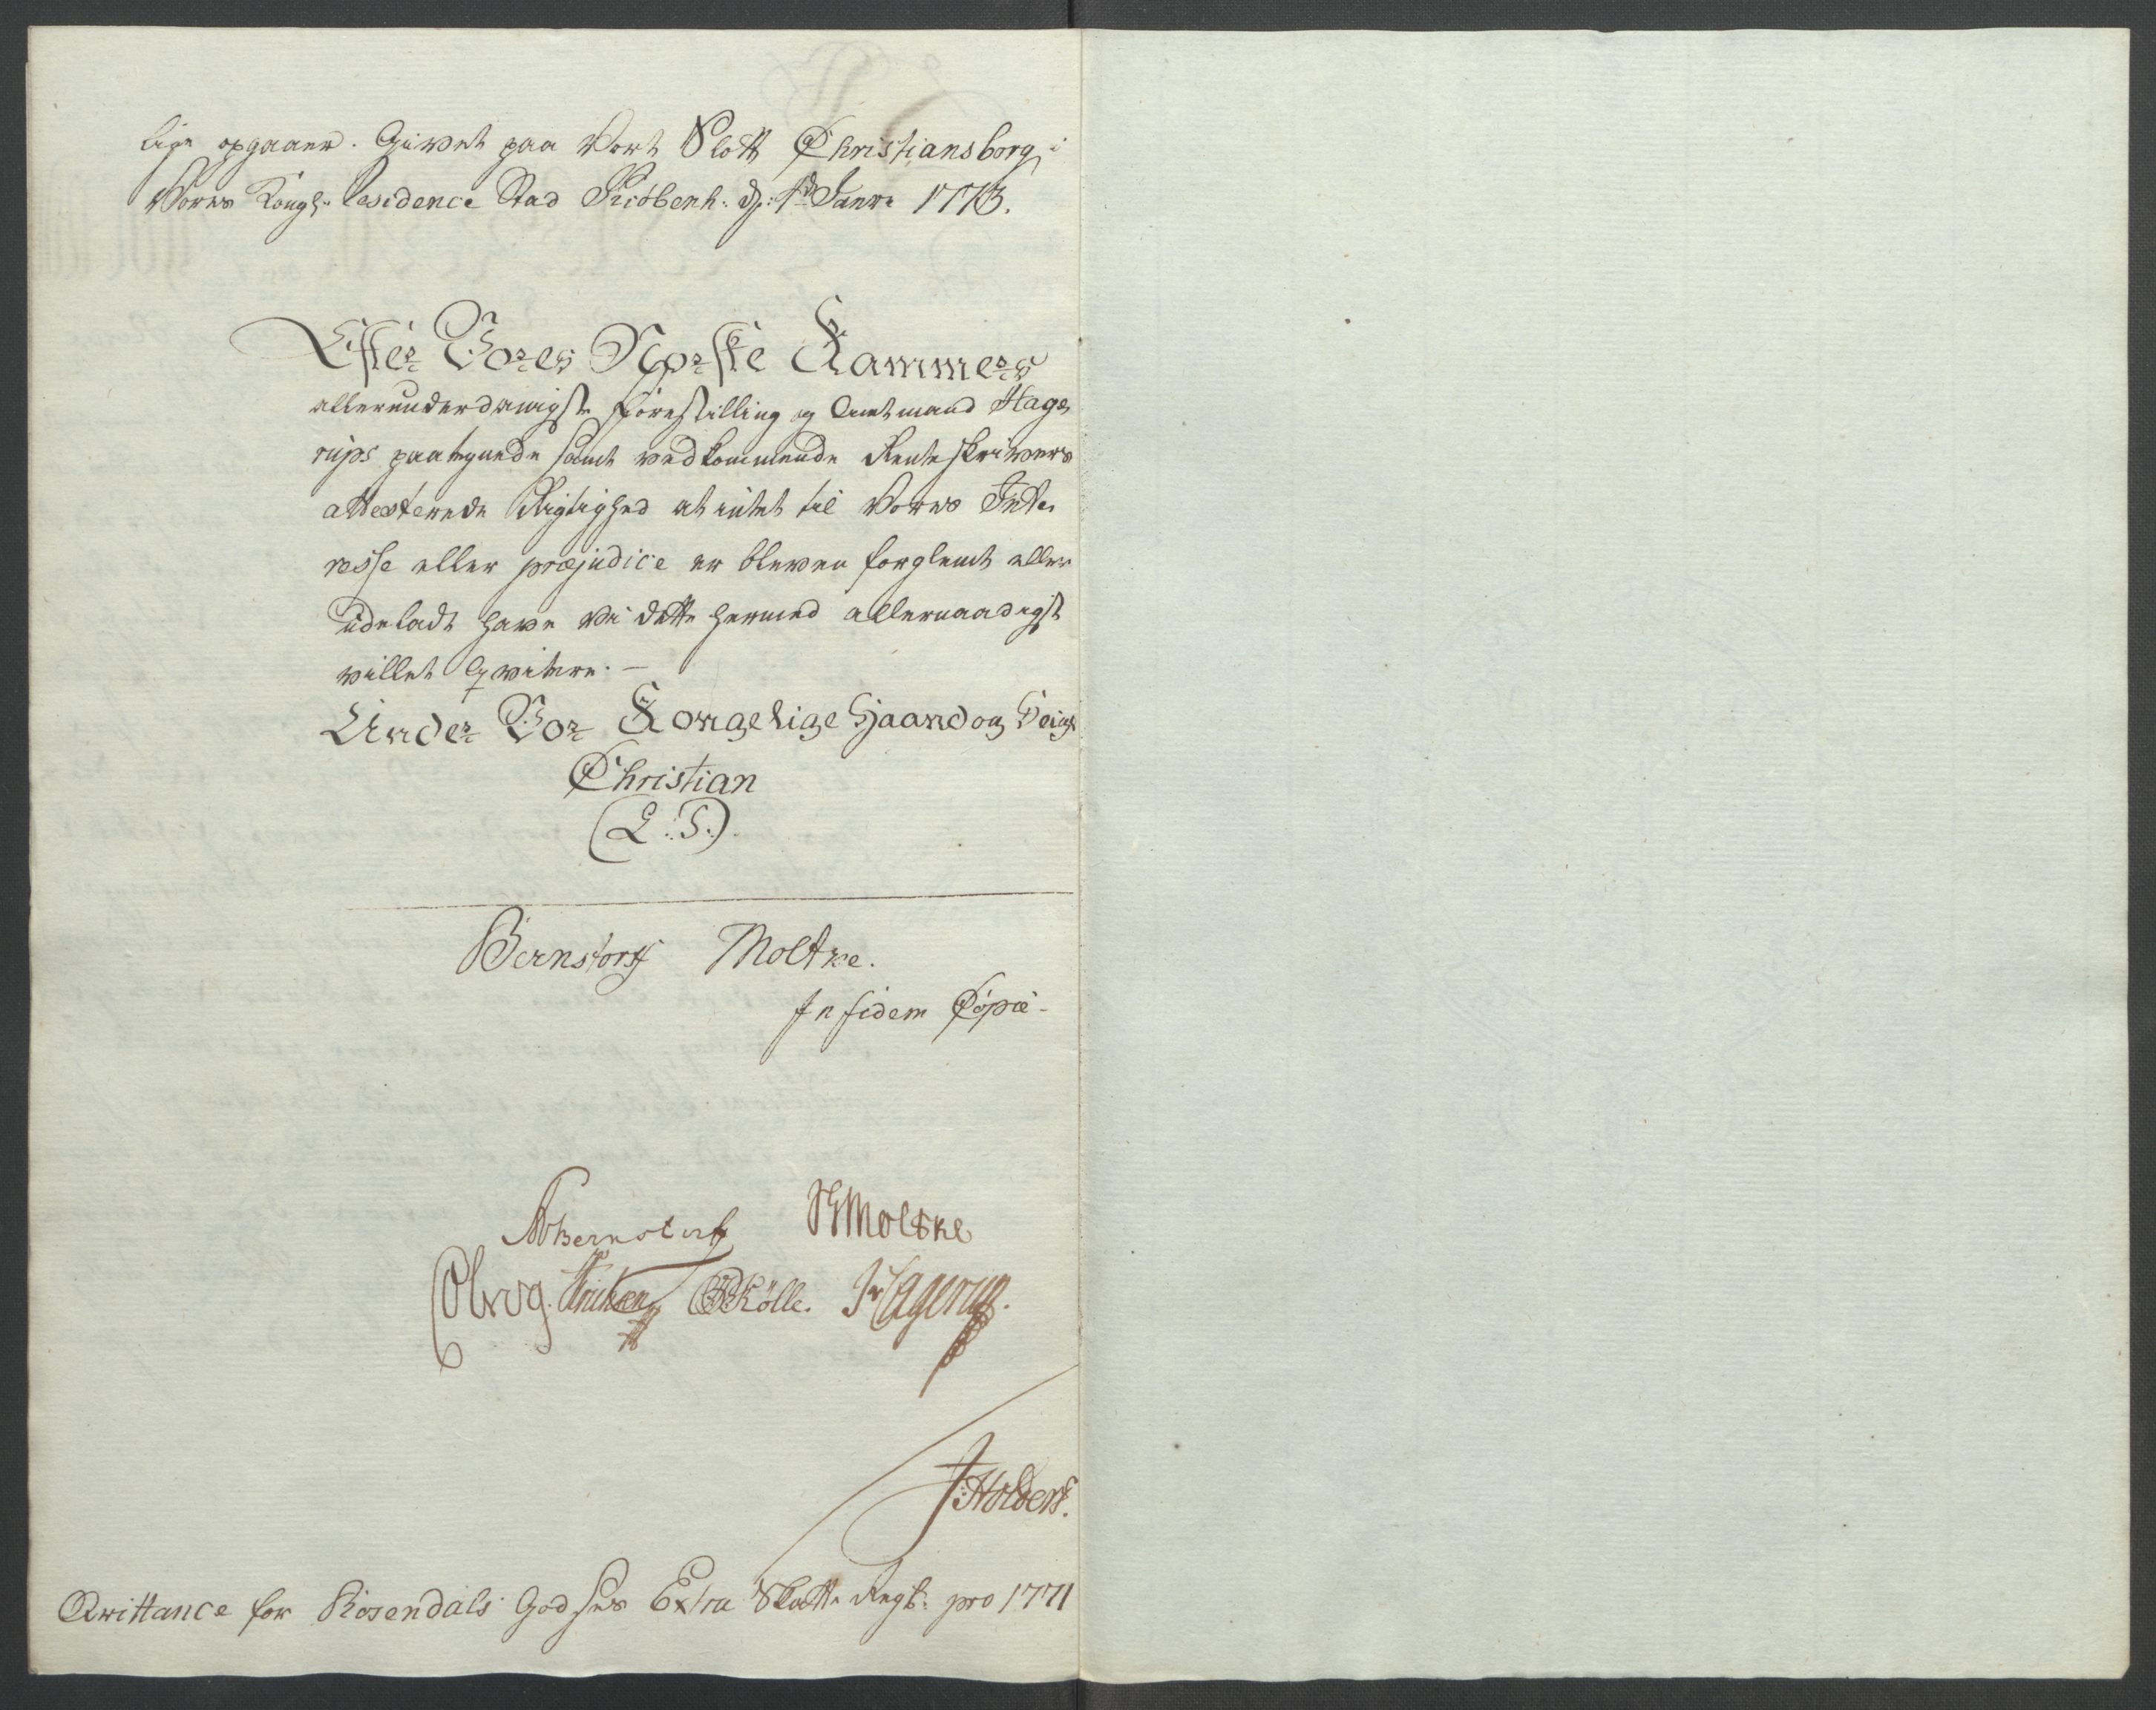 lige opgaaer. Givet paa Vort Slott Christiansborg i
Vores Kongl: Residence Stad Kiöbenh: d: 1d Janvr 1773.
Efter Vores Norske Kammers
allerunderdanigste forestilling og Amtmand Hage,
rups paategnede samt vedkommende Renteskrivers
attesterede Rigtighed at intet til Vores Inte,
resse eller præjudice er bleven forglemt eller
udeladt have vi dette hermed allernaadigst
villet Qvitere. –
Under Vor Kongelige Haand og Seigl
Christian
(L.S.).
Bernstorff Moltke.
In fidem Copiæ
Bernstorff Moltke
GDKölle. Hagerup.
Holdert.
Qvittance for Rosendals Godses Extra Skatte Regsk: pro 1771